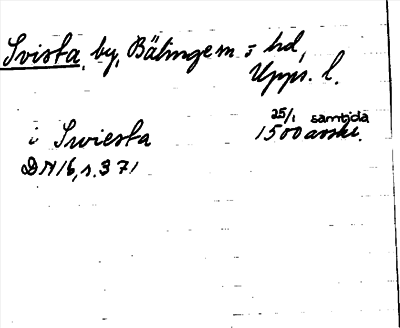 Svista, by, Bälinge sn o hd,
Upps. l.
i Swiesta 25/1 1500 samtida avskr.
DN 16, s. 371